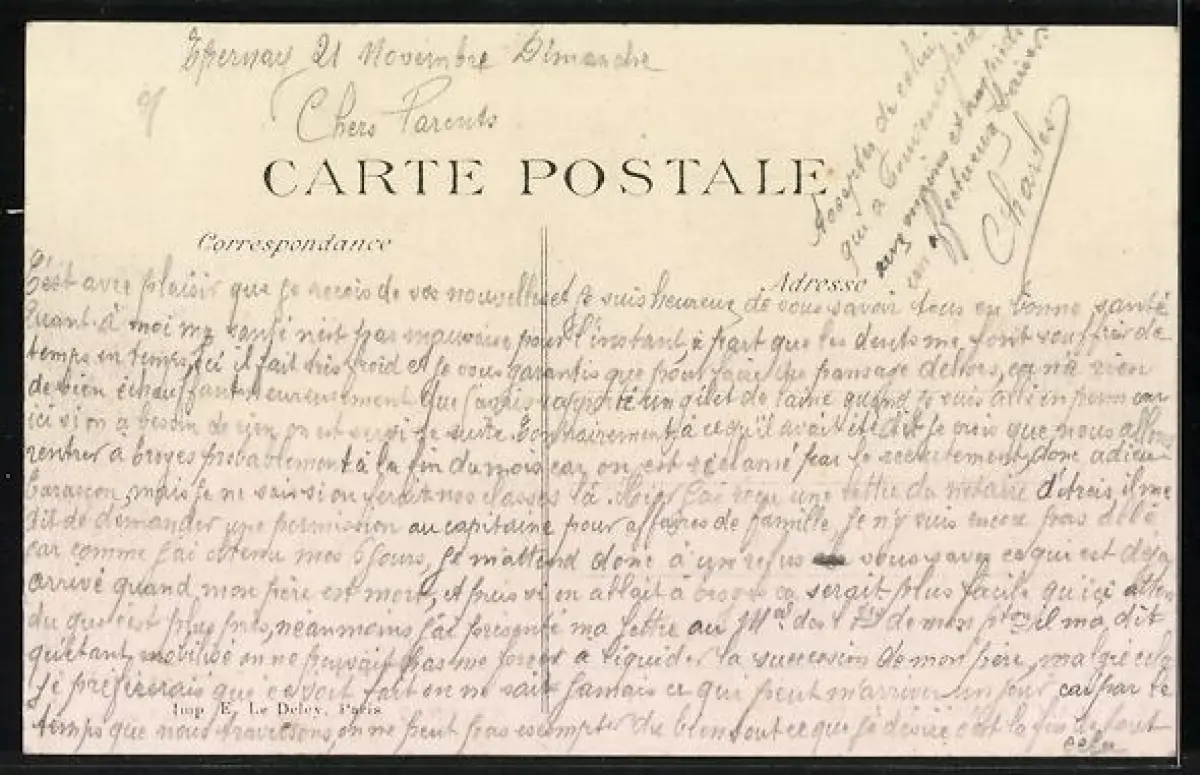 Epernay 21 Novembre Dimanche
Chers Parents
CARTE POSTALE
Correspondance
Adresse
C'est avec plaisir que je recois de vos nouvelles et je suis heureux de vous savoir tous en bonne santé
Quant à moi ma santé n'est pas mauvaise pour l'instant, à part que les dents me font souffrir de
temps en temps, ici il fait très froid et je vous garantis que pour faire du pansage dehors, ça n'a rien
de bien échauffant heureusement que j'avais rapporté un gilet de laine quand je suis allé en perm car
ici si on a besoin de rien on est servi de suite. Contrairement à ce qu'il avait été dit je crois que nous allons
rentrer à broyes probablement à la fin du mois car on est réclamé par le recrutement, donc adieu
Tarascon, mais je ne sais si on ferait nos classes là. Hier j'ai reçu une lettre du notaire d'étrois, il me
dit de demander une permission au capitaine pour affaires de famille, je n'y suis encore pas allé
car comme j'ai obtenu mes 6 jours, je m'attend donc à un refus vous savez ce qui est déjà
arrivé quand mon père est mort, et puis si on allait à broyes ça serait plus facile qu'ici atten
du que c'est plus près, néanmoins j'ai présenté ma lettre au de mon il m'a dit
qu'étant mobilisé on ne pouvait pas me forcer à liquider la succession de mon père, malgré cela
je préfèrerais que ce soit fait on ne sait jamais ce qui peut m'arriver un jour car par le
temps que nous traversons, on ne peut pas escompter du bien tout ce que je désire c'est la fin de tout
cela
Acceptez de celui
qui a
aux mains et aux pieds
ses affectueux baisers
Charles
Imp. E. Le Deley, Paris